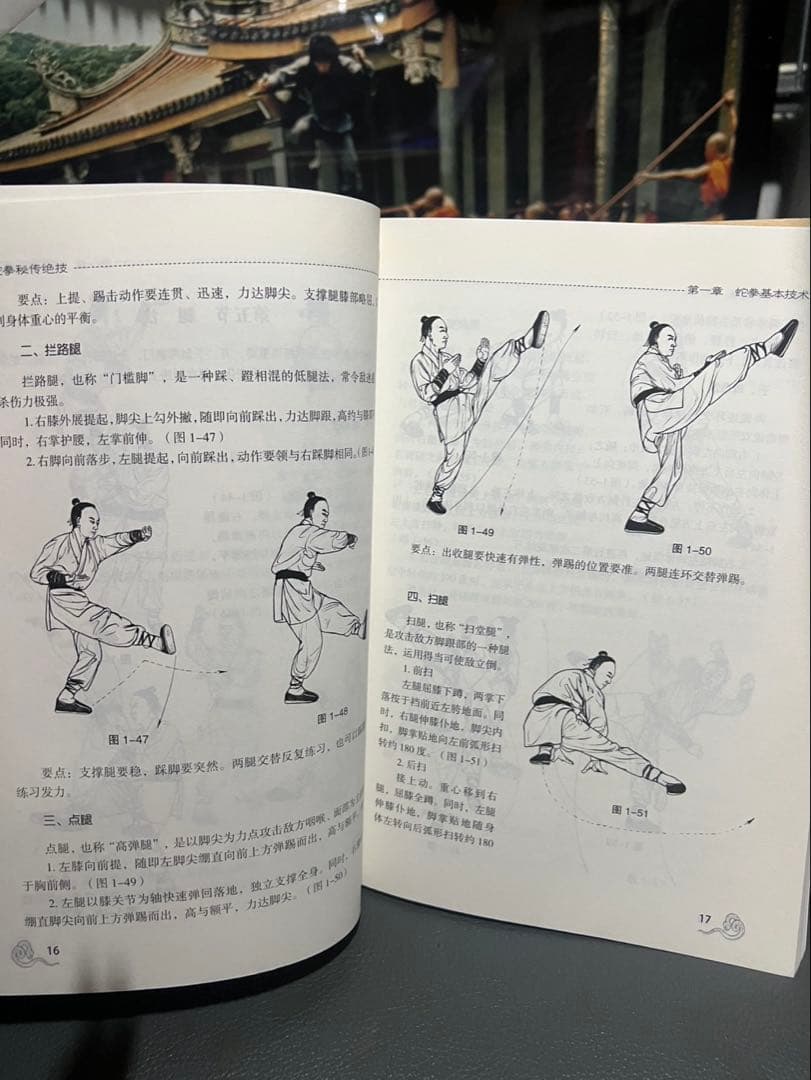 拳秘传绝技
要点：上提、踢击动作要连贯、迅速，力达脚尖。支撑腿膝部略
到身体重心的平衡。
二、拦路腿
拦路腿，也称“门槛脚”，是一种踩、蹬相混的低腿法，常令敌
杀伤力极强。
1.右膝外展提起，脚尖上勾外撇，随即向前踩出，力达脚跟，高约与膝
同时，右掌护腰，左掌前伸。（图1-47）
2.右脚向前落步，左腿提起，向前踩出，动作要领与右踩脚相同。（图1-4
图1-47
图1-48
要点：支撑腿要稳，踩脚要突然。两腿交替反复练习，也可以
练习发力。
三、点腿
点腿，也称“高弹腿”，是以脚尖为力点攻击敌方咽喉、面部为
1.左膝向前提，随即左脚尖绷直向前上方弹踢而出，高与额平，
于胸前侧。（图1-49）
2.左腿以膝关节为轴快速弹回落地，独立支撑全身。同时，
绷直脚尖向前上方弹踢而出，高与额平，力达脚尖。（图1-50）
16
第一章 蛇拳基本技术
图1-49
图1-50
要点：出收腿要快速有弹性，弹踢的位置要准。两腿连环交替弹踢。
四、扫腿
扫腿，也称“扫堂腿”，
是攻击敌方脚跟部的一种腿
法，运用得当可使敌立倒。
1.前扫
左腿屈膝下蹲，两掌下
落按于裆前近左胯地面。同
时，右腿伸膝仆地，脚尖内
扣，脚掌贴地向左前弧形扫
转约180度。（图1-51）
2.后扫
接上动。重心移到右
腿，屈膝全蹲。同时，左腿
伸膝仆地，脚掌贴地随身
体左转向后弧形扫转约180
图1-51
17